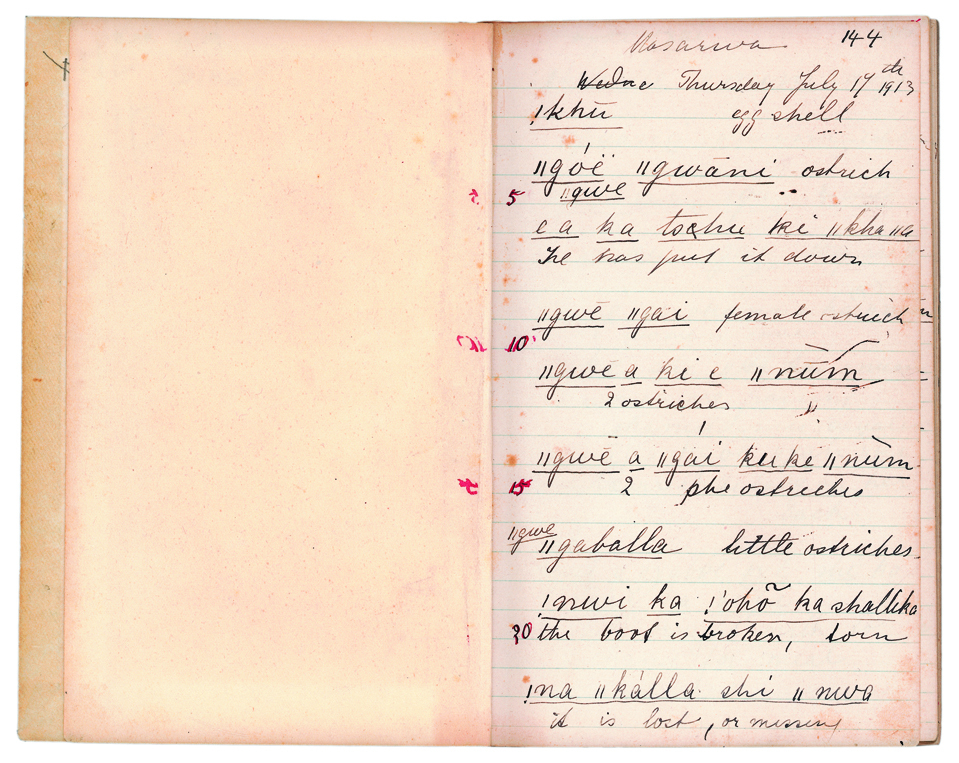 Masarwa 144
Wedne Thursday July 17th 1913
!khū egg shell
ǁgóë ǁgwāni ostrich
5 ǁgwe
e a ka tschu ki ǁkha ǁa
He has put it down
ǁgwē ǁgai female ostrich
10
ǁgwē a ki e ǁnūm
2 ostriches ǁ
ǁgwē a ǁgái ku ke ǁnūm
15 2 she ostriches
ǁgwe
ǁgaballa little ostriches
!nwi ka !ohõ ka shalleka
20 the boot is broken, torn
!na ǁkálla shi ǁnwa
it is lost, or missing